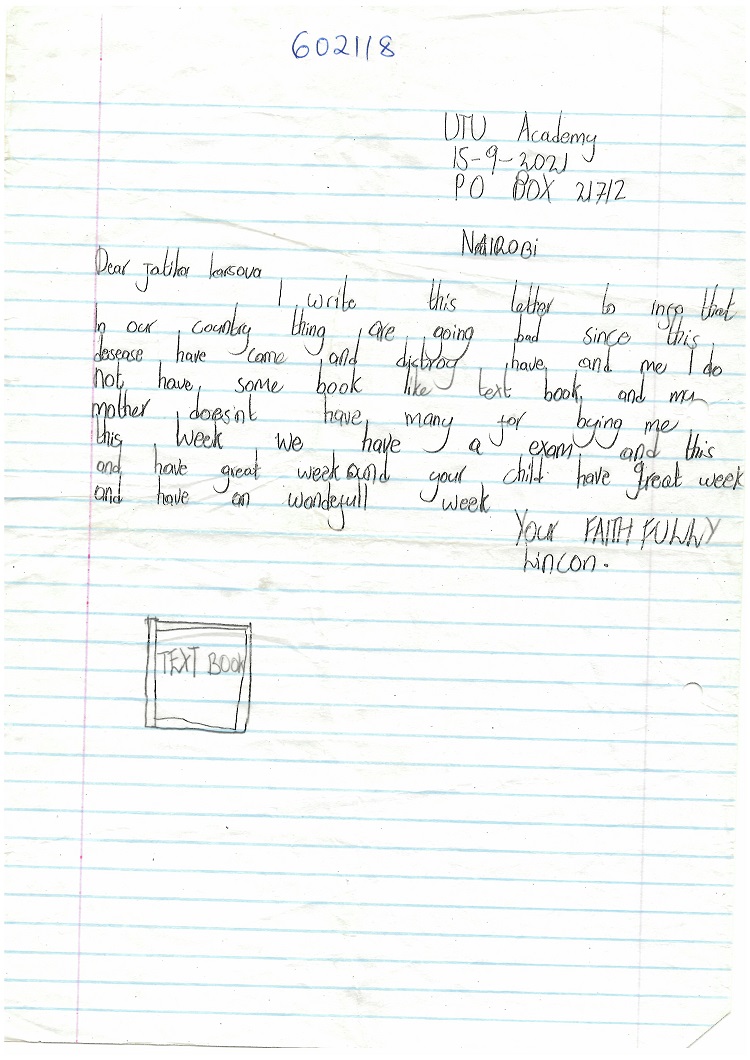 602118
UTU Academy
15-9-2021
P O BOX 21712
NAIROBi
Dear Jatika karsova
I write this letter to info that
In our country thing are going bad since this
desease have come and distroy have and me I do
not have some book like text book and my
mother doesint have many for bying me
this week we have a exam and this
and have great week and your child have great week
and have an wondefull week
Your FAITHFULLY
Lincon.
TEXT BOOK